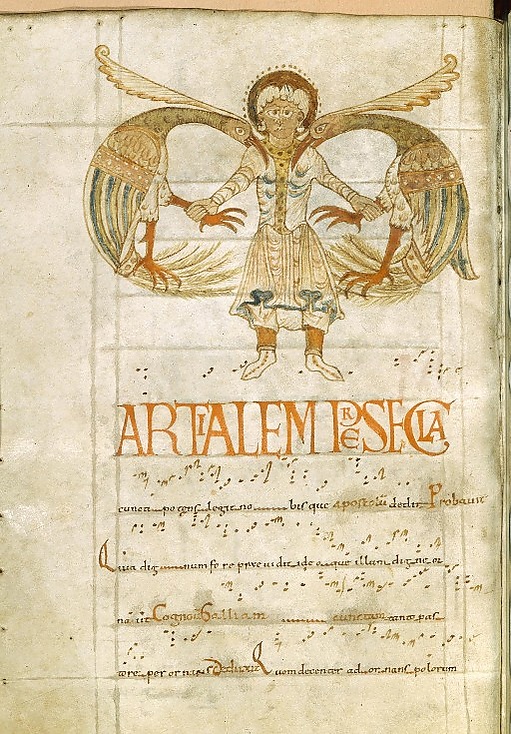 ARTIALEM PRESECLA
cuncta potens legit nobisque apostolū dedit Probauit
Quia dignum fore preuidit ideoque illum digne or
nauit Cognou Galliam cunctam tanto pas
tore perornans Quom decenter adornans polorum